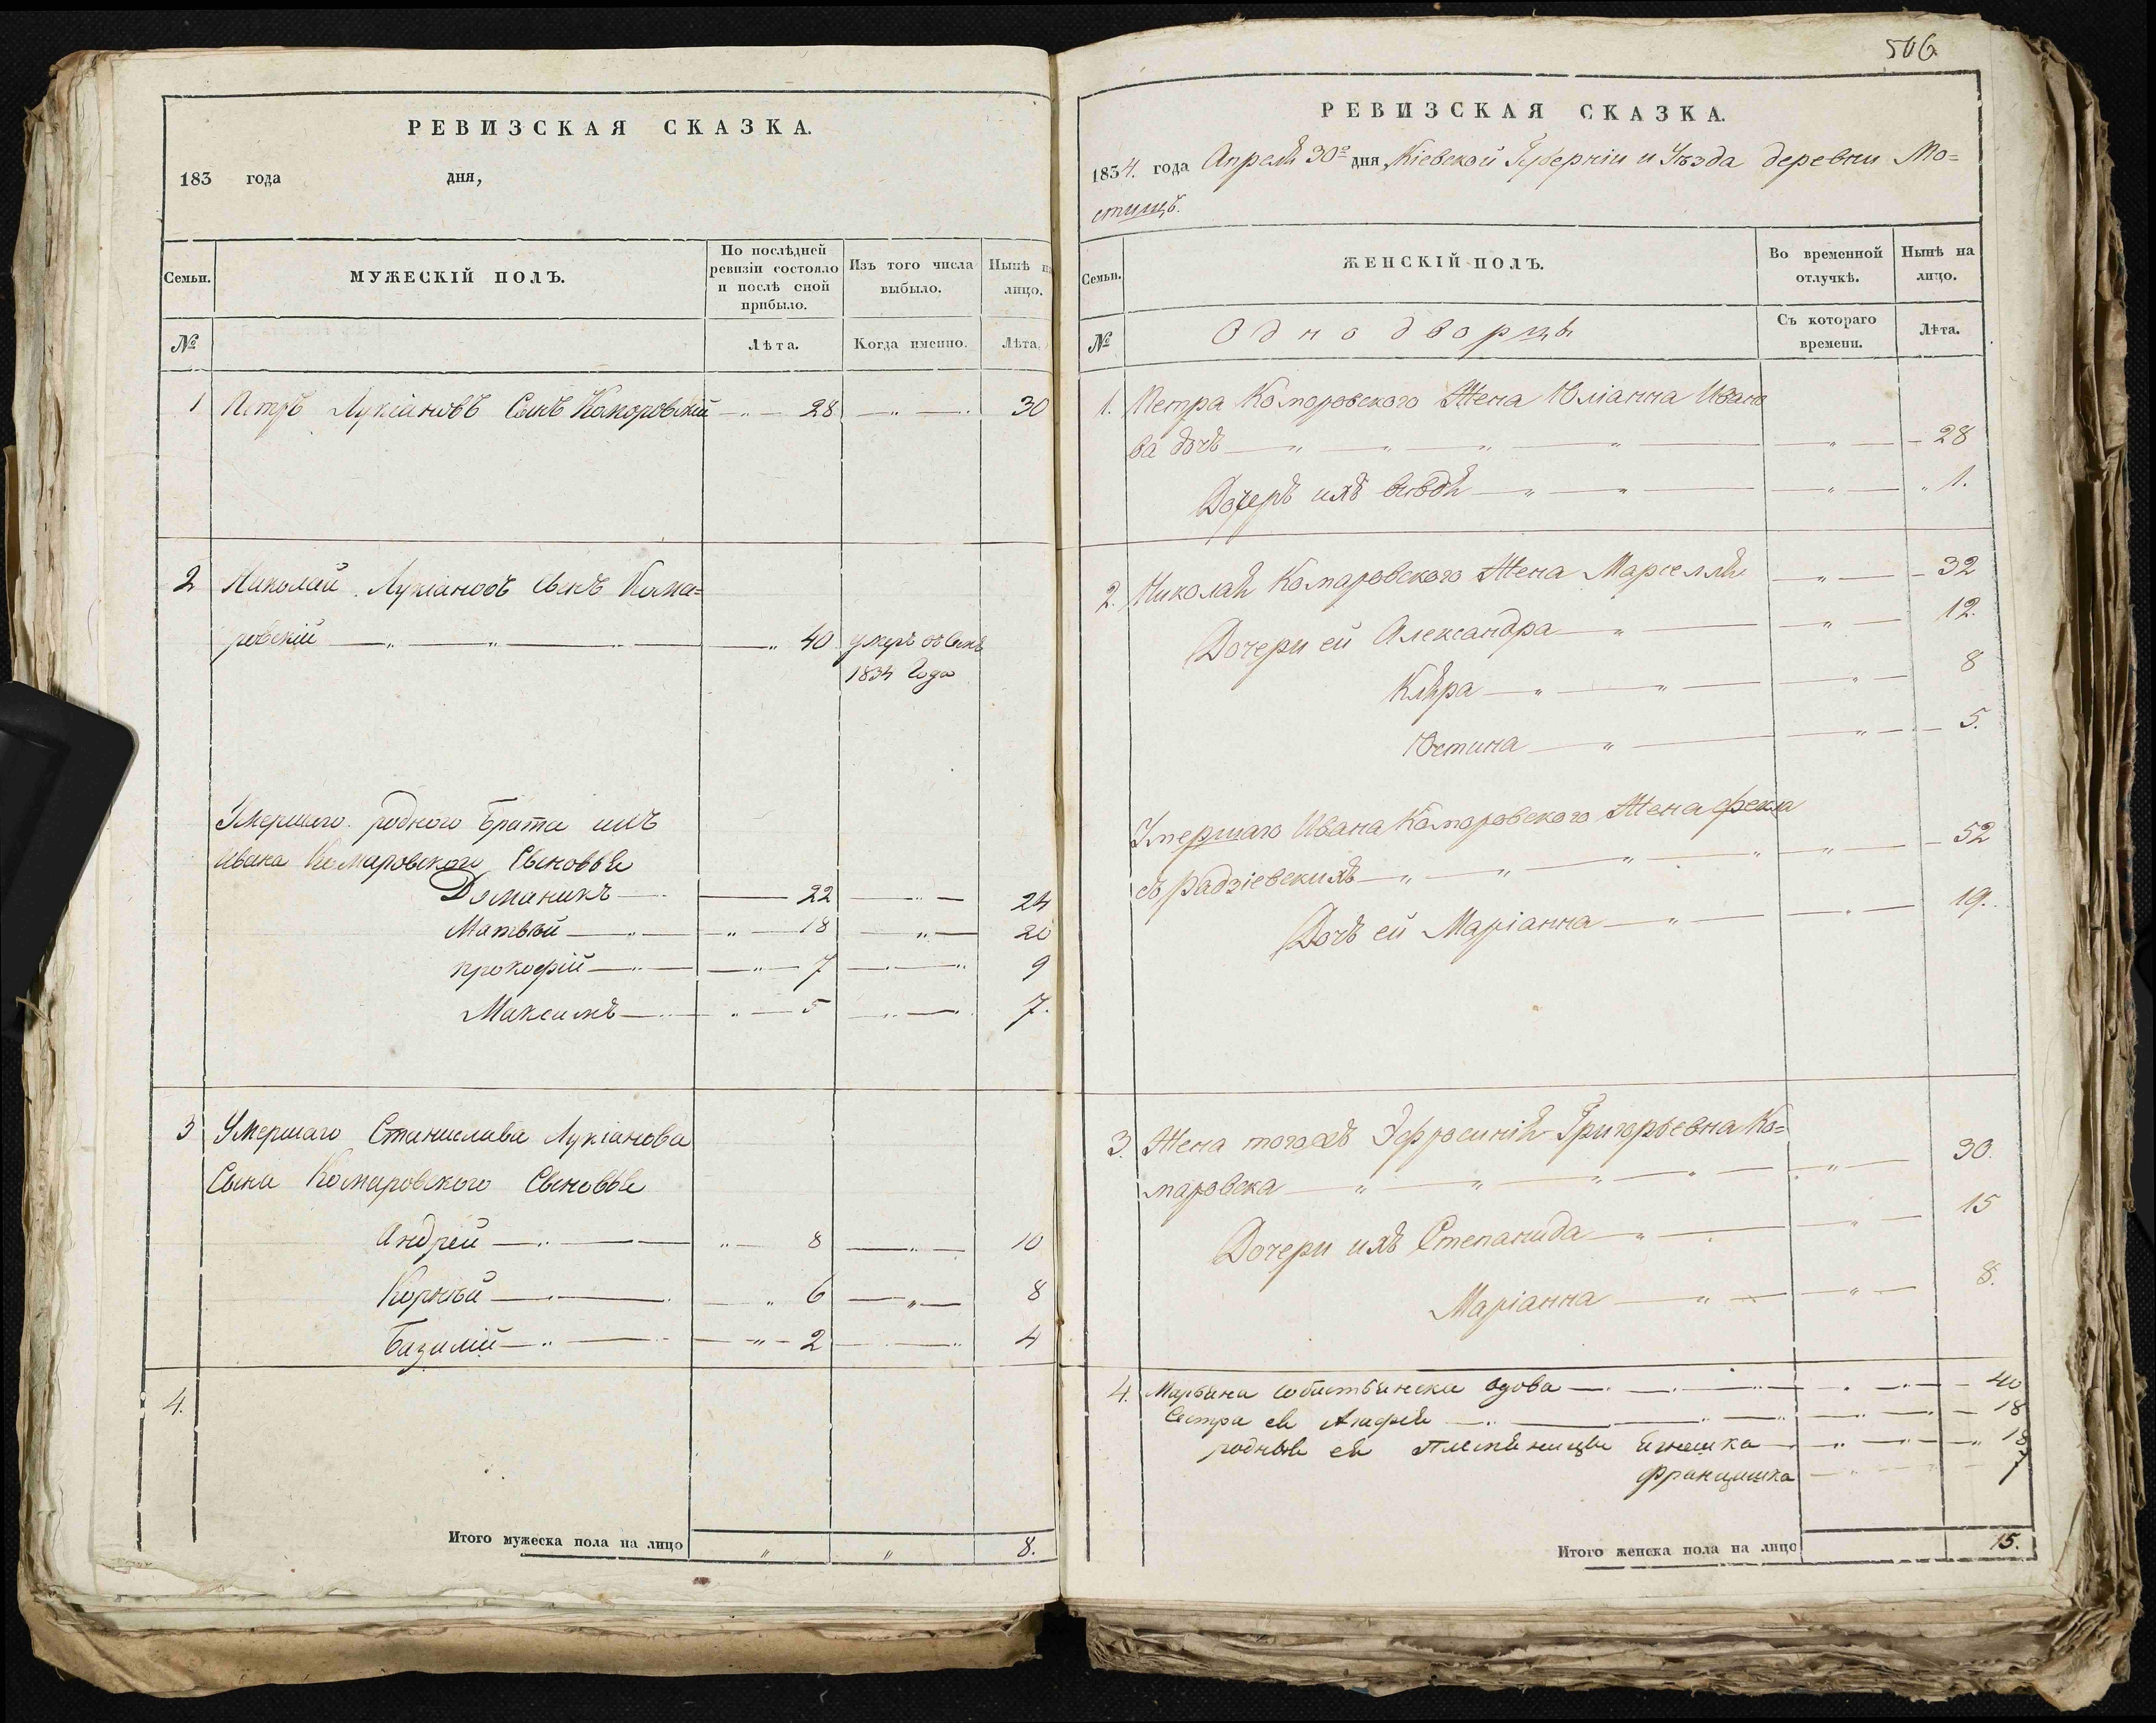 РЕВИЗСКАЯ СКАЗКА.
183 года дня,
Семьи. МУЖЕСКІЙ ПОЛЪ. По послѣдней ревизіи состояло и послѣ оной прибыло. Изъ того числа выбыло. Нынѣ на лицо.
№ Лѣта. Когда именно. Лѣта.
1 Петръ Лукіановъ Сынъ Комаровскій — " — 28 — " — 30
2 Николай Лукіановъ Сынъ Кома=
ровскій — " — " — 40 умеръ въ
1834 Года
Умершаго родного Брата ихъ
Ивана Комаровского Сыновья
Доманикъ — 22 — " — 24
Матвѣй — " — 18 — " — 20
Прокофій — " — 7 — " — 9
Максимъ — " — 5 — " — 7.
3 Умершаго Станислава Лукіанова
Сына Комаровского Сыновья
Андрей — " — 8 — " — 10
Корнѣй — " — 6 — " — 8
Базилій — " — 2 — " — 4
4.
Итого мужеска пола на лицо " " 8.
506
РЕВИЗСКАЯ СКАЗКА.
1834. года Апреля 30го дня, Кіевской Губерніи и Уѣзда деревни Мо=
стищъ.
Семьи. ЖЕНСКІЙ ПОЛЪ. Во временной отлучкѣ. Нынѣ на лицо.
№ Однодворцы Съ котораго времени. Лѣта.
1. Петра Комаровского Жена Юліанна Ивано
ва дочь — " — " — " — 28
Дочерь ихъ — " — " — " 1.
2. Николая Комаровского Жена Марселля — " — 32
Дочери ей Александра — " — 12.
Кляра — " — " — 8
Юстина — " — " — 5.
Умершаго Ивана Комаровского Жена Фекла
съ Радзіевскихъ — " — " — " — 52
Дочь ей Маріанна — " — 19.
3. Жена тогожъ Эфросинія Григорьевна Ко=
маровска — " — " — " — 30.
Дочери ихъ Степанида — " — 15
Маріанна — " — " — 8.
4. Марьяна вдова — " — 40
Сестра ея — " — 18
родные ея племяницы Агнешка — " — 18
Францишка — " — 7
Итого женска пола на лицо 15.